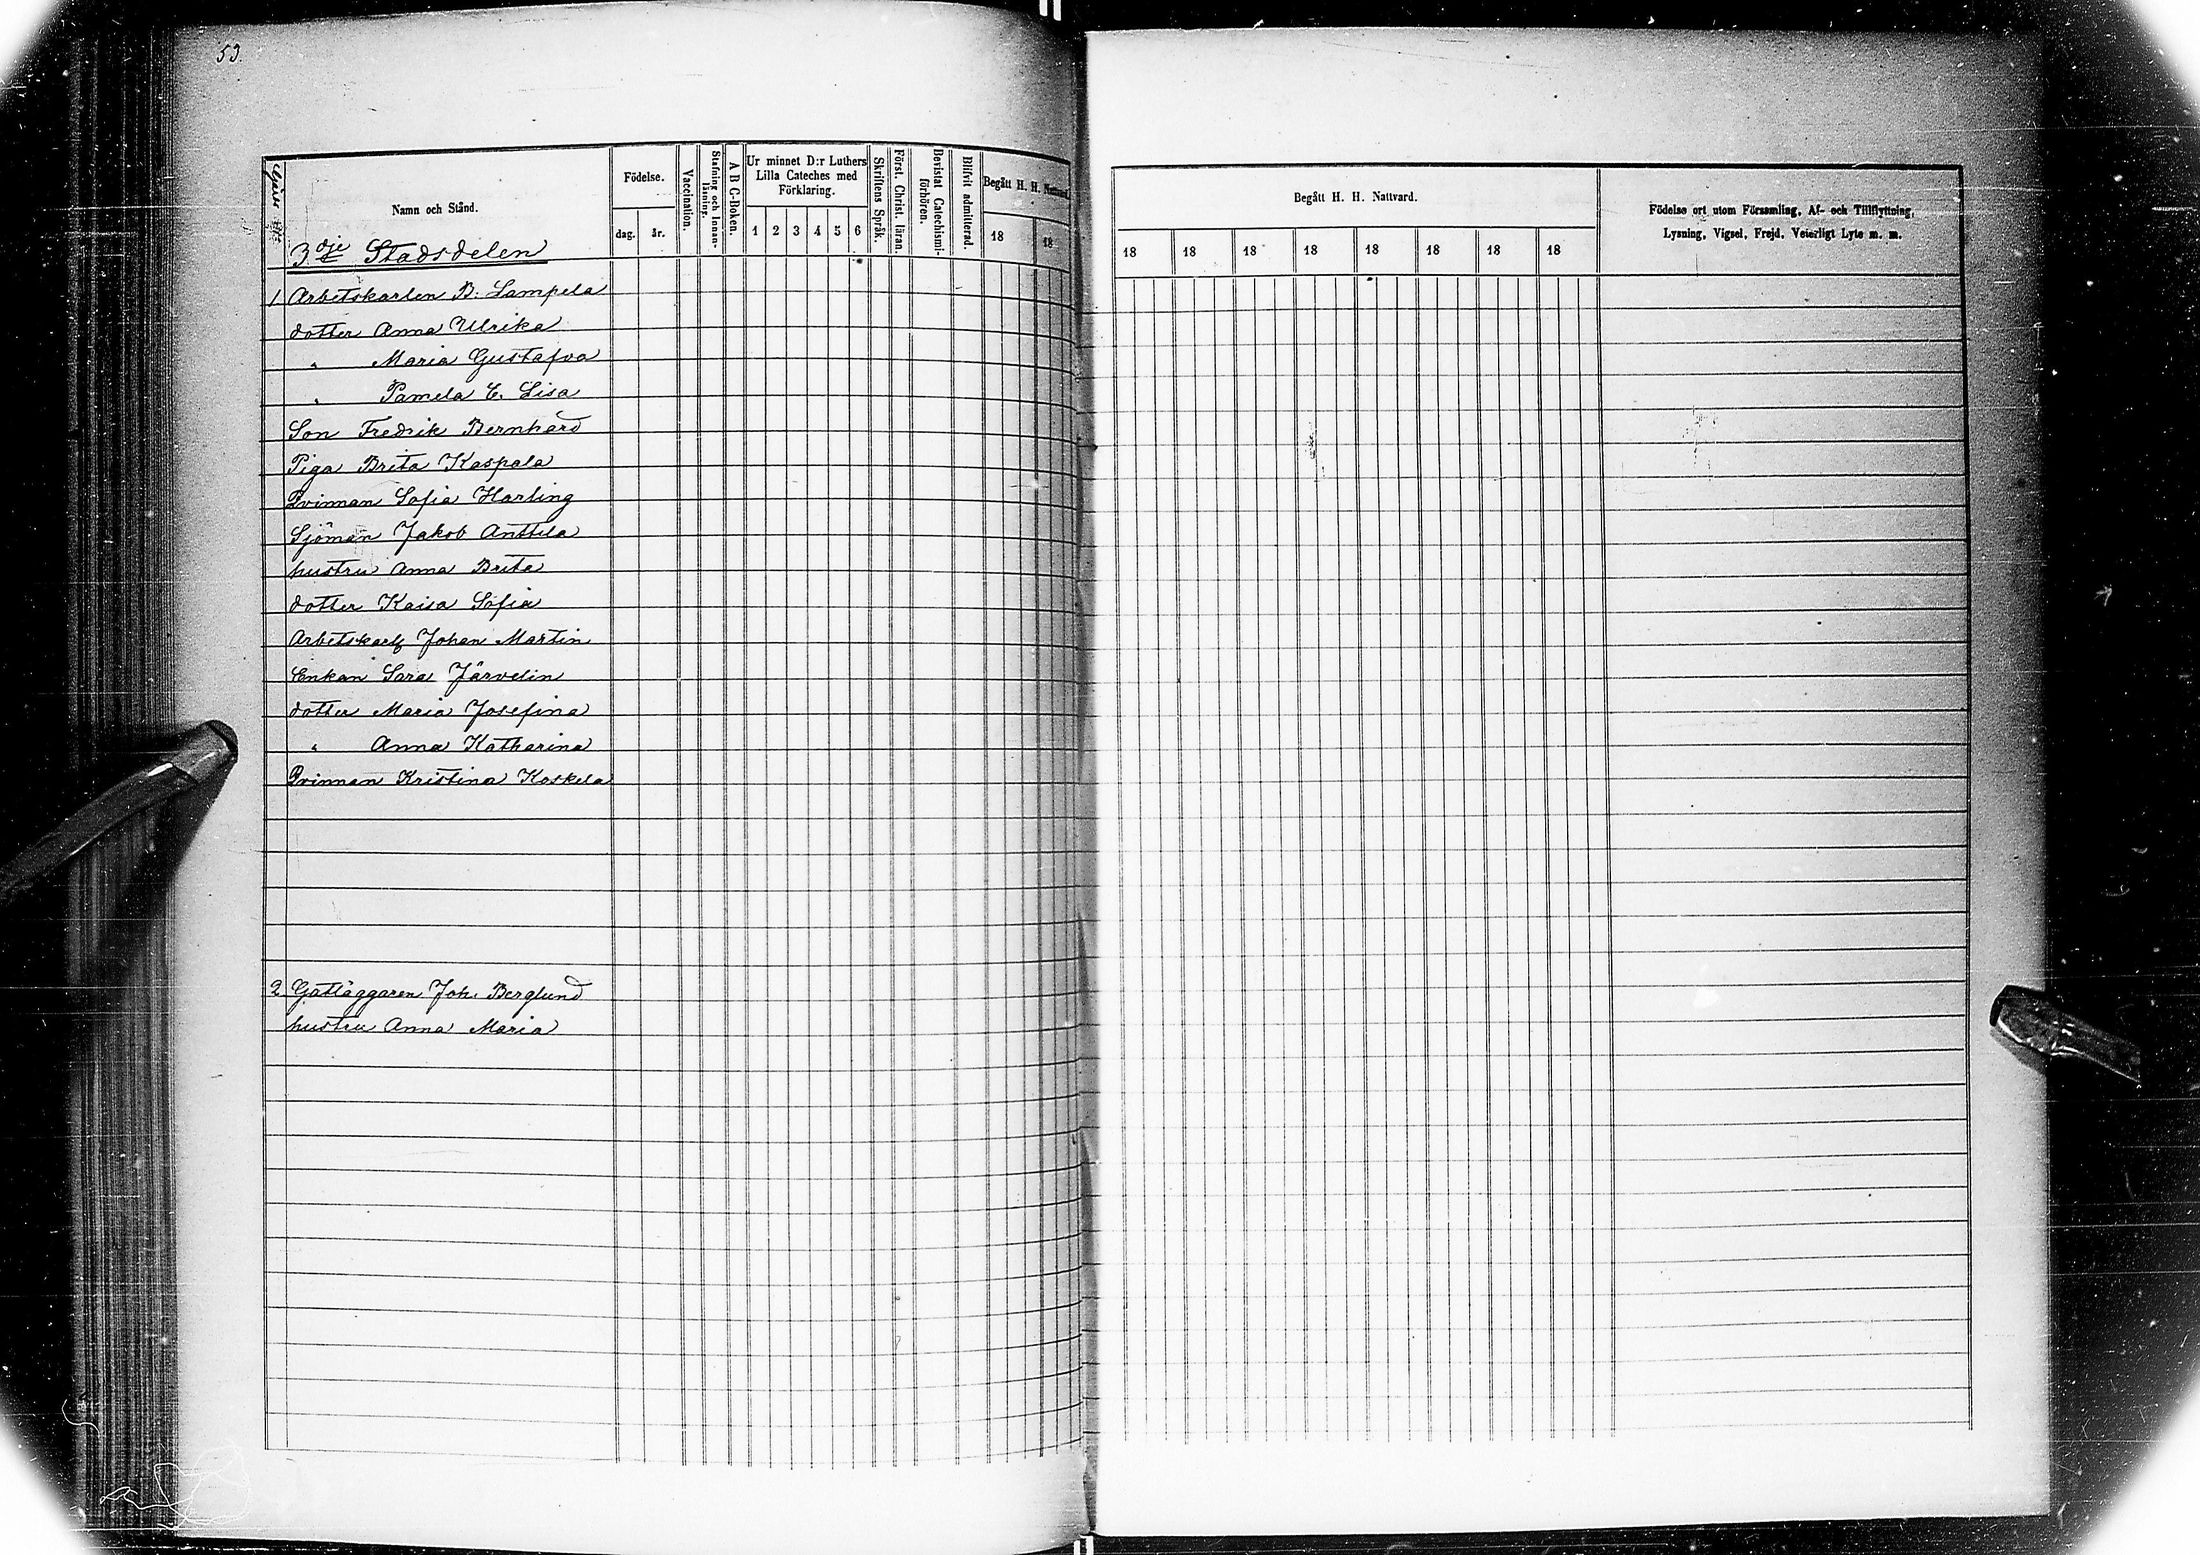 53.
Namn och Stånd.
Födelse.
dag.
år.
Vaccination.
Stafning och Innan-
läsning.
A B C-Boken.
Ur minnet D:r Luthers
Lilla Cateches med
Förklaring.
1 2 3 4 5 6
Skriftens Språk.
Först. Christ. läran.
Bevistat Catechismi-
förhören.
Blifvit admitterad.
Begått H. H. Nattvard.
18 18
3dje Stadsdelen
1 Arbetskarlen B. Lampela
dotter Anna Ulrika
" Maria Gustafva
" Pamela E. Lisa
Son Fredrik Bernhard
Piga Brita Kaspala
Qvinnan Sofia Harling
Sjöman Jakob Anttila
hustru Anna Brita
dotter Kaisa Sofia
Arbetskarln Johan Martin
Enkan Sara Järvelin
dotter Maria Josefina
" Anna Katharina
Qvinnan Kristina Koskela
2. Gatläggaren Joh. Berglund
hustru Anna Maria
Begått H. H. Nattvard.
18 18 18 18 18 18 18 18
Födelse ort utom Församling, Af- och Tillflyttning,
Lysning, Vigsel, Frejd, Veterligt Lyte m. m.